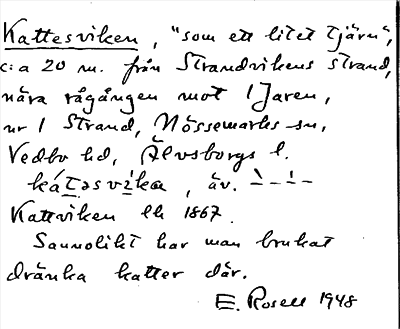 Kattesviken, "som ett litet tjärn",
c:a 20 m. från Strandvikens strand,
nära rågången mot 1 Jaren,
nr 1 Strand, Nössemarks sn,
Vedbo hd, Älvsborgs l.
kátəsvìkɑ, äv. –̀–́–
Kattviken lk 1867.
Sannolikt har man brukat
dränka katter där.
E. Rosell 1948